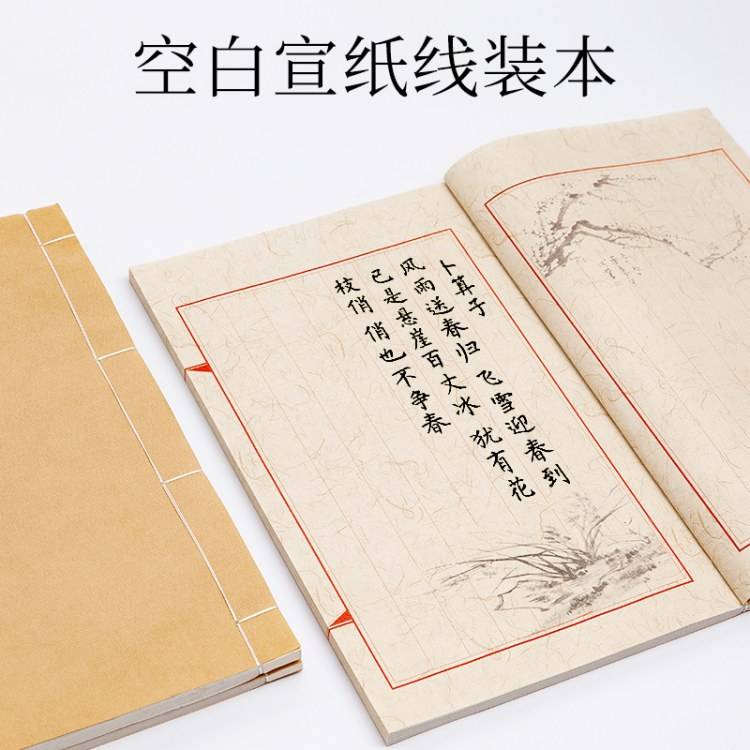 空白宣纸线装本
卜算子
风雨送春归 飞雪迎春到
已是悬崖百丈冰 犹有花
枝俏 俏也不争春